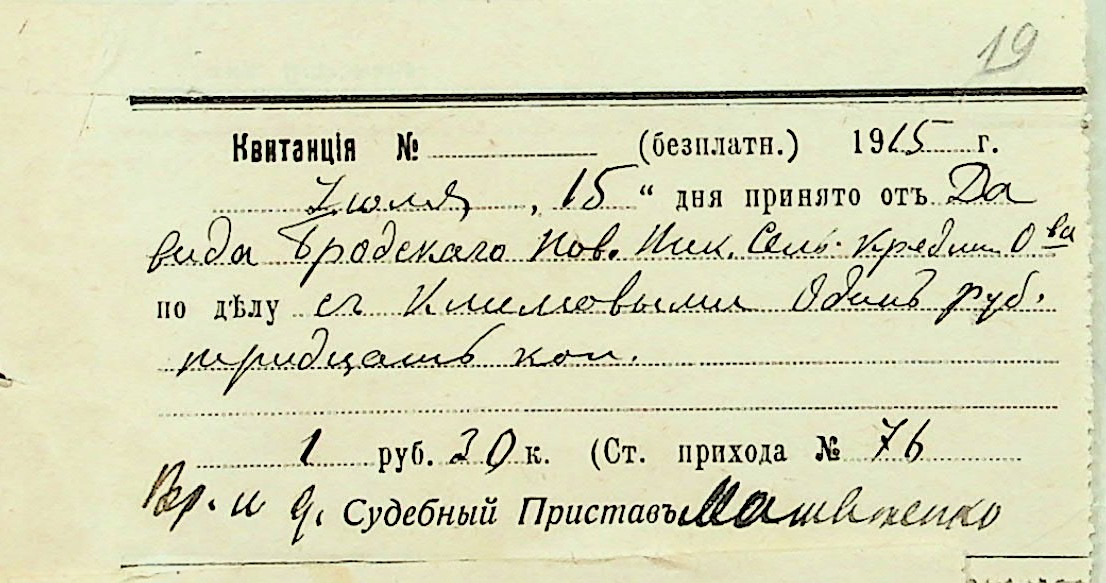 19
Квитанція № (безплатн.) 1915 г.
Іюля, 15 “ дня принято отъ Да
вида Бродскаго Пов. Ник. Сель. Кредит. О ва
по дѣлу съ Климовыми Одинъ руб.
тридцать коп.
1 руб. 30 к. (Ст. прихода № 76
Вр. и д. Судебный Приставъ